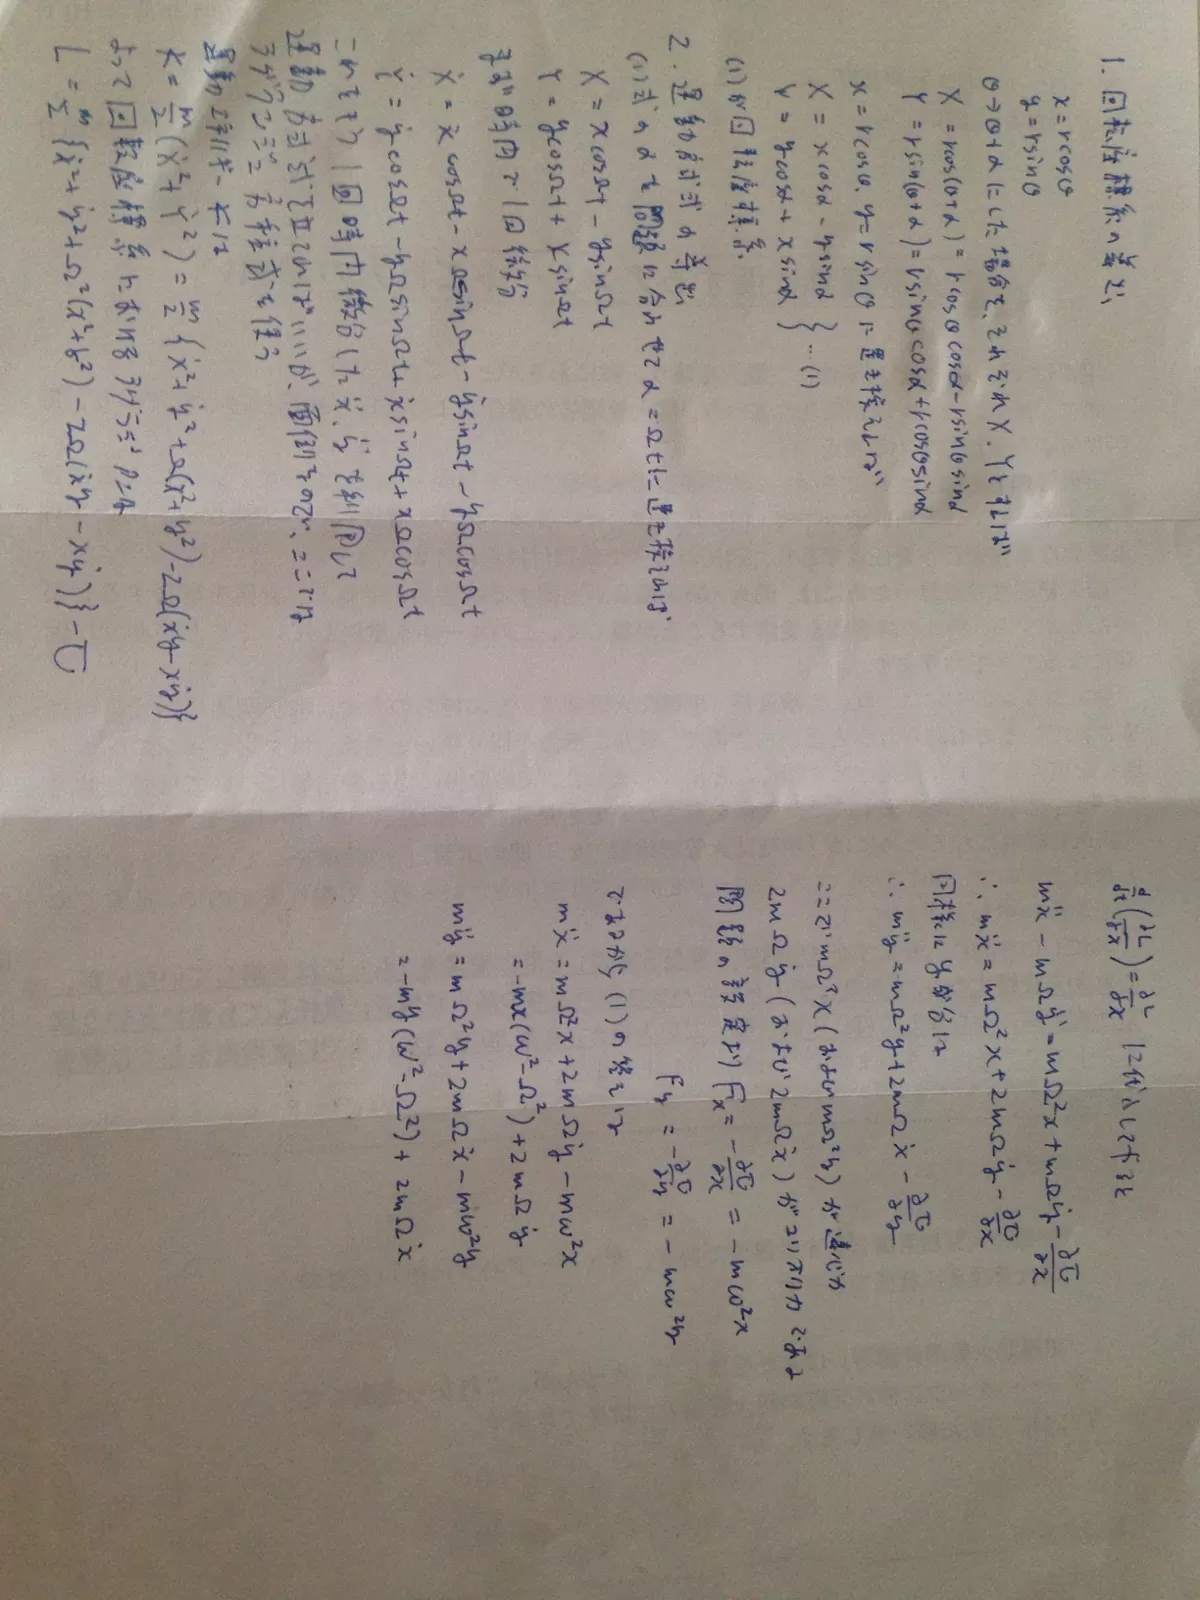 1. 回転座標系の導出
x = rcosθ
y = rsinθ
θ→θ+αにした場合で、それぞれX, Yとすれば
X = rcos(θ+α) = rcosθcosα - rsinθsinα
Y = rsin(θ+α) = rsinθcosα + rcosθsinα
x = rcosθ, y = rsinθに置き換えれば
X = xcosα - ysinα
Y = ycosα + xsinα } …(1)
(1)が回転座標系.
2. 運動方程式の導出
(1)式のαを問題に合わせてα=Ωtに置き換えれば
X = xcosΩt - ysinΩt
Y = ycosΩt + xsinΩt
まず時間で1回微分
Ẋ = ẋcosΩt - xΩsinΩt - ẏsinΩt - yΩcosΩt
Ẏ = ẏcosΩt - yΩsinΩt + ẋsinΩt + xΩcosΩt
これをもう1回時間微分したẍ, ÿを利用して
運動方程式を立てればいいが、面倒なので、ここでは
ラグランジュ方程式を使う
運動エネルギーKは
K = m/2 (Ẋ² + Ẏ²) = m/2 {ẋ² + ẏ² + Ω(x² + y²) - 2Ω(ẋy - xẏ)}
よって回転座標系におけるラグランジアンは
L = m/2 {ẋ² + ẏ² + Ω²(x² + y²) - 2Ω(ẋy - xẏ)} - U
d/dt (∂L/∂ẋ) = ∂L/∂x に代入して
mẍ - mΩẏ = mΩ²x + mΩẏ - ∂U/∂x
∴ mẍ = mΩ²x + 2mΩẏ - ∂U/∂x
同様にy成分は
∴ mÿ = mΩ²y + 2mΩẋ - ∂U/∂y
ここでmΩ²x (およびmΩ²y) が遠心力
2mΩẏ (および2mΩẋ) がコリオリ力である
問題の設定より Fx = -∂U/∂x = -mω²x
Fy = -∂U/∂y = -mω²y
であるから (1)の答えは
mẍ = mΩ²x + 2mΩẏ - mω²x
= -mx(ω² - Ω²) + 2mΩẏ
mÿ = mΩ²y + 2mΩẋ - mω²y
= -my(ω² - Ω²) + 2mΩẋ